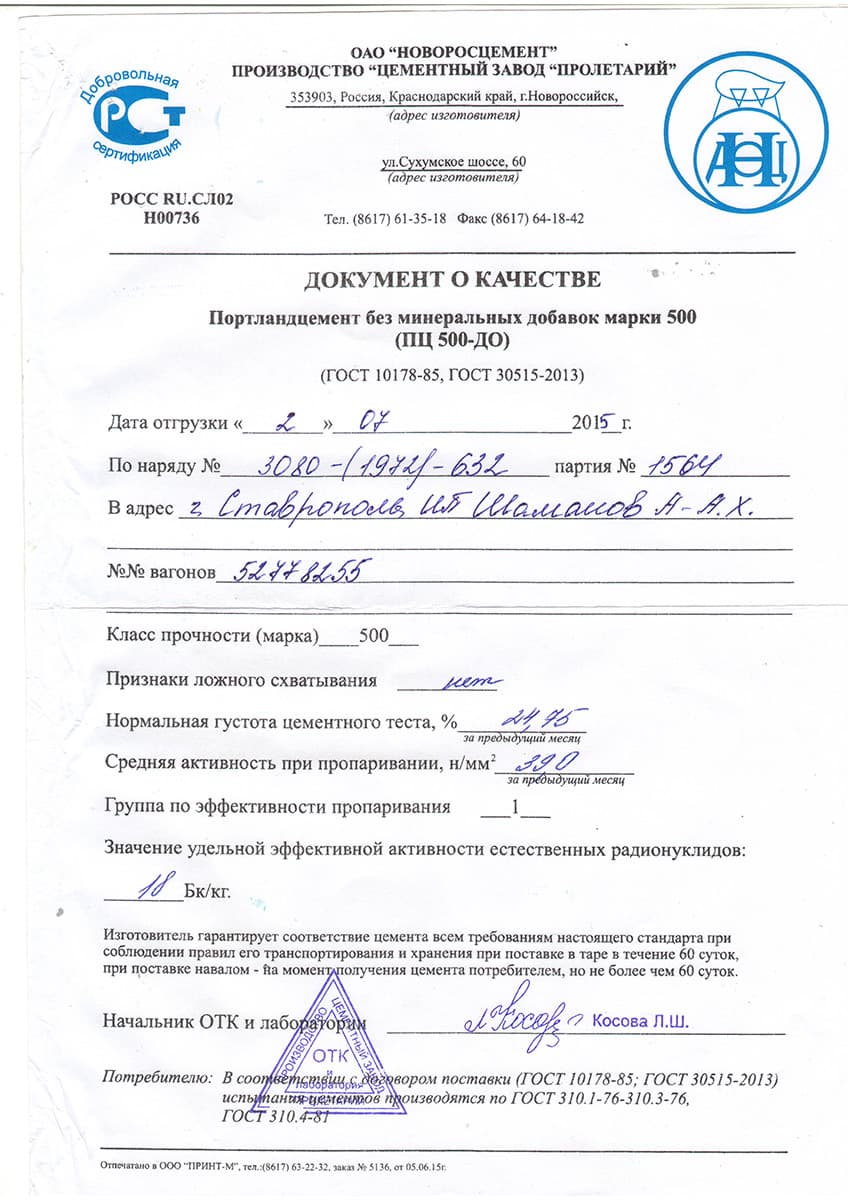 ОАО “НОВОРОСЦЕМЕНТ”
ПРОИЗВОДСТВО “ЦЕМЕНТНЫЙ ЗАВОД “ПРОЛЕТАРИЙ”
353903, Россия, Краснодарский край, г.Новороссийск,
(адрес изготовителя)
ул.Сухумское шоссе, 60
(адрес изготовителя)
Тел. (8617) 61-35-18 Факс (8617) 64-18-42
Добровольная
РСТ
сертификация
РОСС RU.СЛ02
Н00736
АНЦ
ДОКУМЕНТ О КАЧЕСТВЕ
Портландцемент без минеральных добавок марки 500
(ПЦ 500-ДО)
(ГОСТ 10178-85, ГОСТ 30515-2013)
Дата отгрузки « 2 » 07 2015 г.
По наряду № 3080-(1972)-632 партия № 1564
В адрес г. Ставрополь ИП Шаманов А-А.Х.
№№ вагонов 52778255
Класс прочности (марка) 500
Признаки ложного схватывания нет
Нормальная густота цементного теста, % 24,75
за предыдущий месяц
Средняя активность при пропаривании, н/мм² 390
за предыдущий месяц
Группа по эффективности пропаривания 1
Значение удельной эффективной активности естественных радионуклидов:
18 Бк/кг.
Изготовитель гарантирует соответствие цемента всем требованиям настоящего стандарта при
соблюдении правил его транспортирования и хранения при поставке в таре в течение 60 суток,
при поставке навалом - на момент получения цемента потребителем, но не более чем 60 суток.
Начальник ОТК и лаборатории Косова Косова Л.Ш.
ПРОИЗВОДСТВО
ЦЕМЕНТНЫЙ ЗАВОД
ОТК
и
лаборатория
Потребителю: В соответствии с договором поставки (ГОСТ 10178-85; ГОСТ 30515-2013)
испытания цементов производятся по ГОСТ 310.1-76-310.3-76,
ГОСТ 310.4-81
Отпечатано в ООО “ПРИНТ-М”, тел.:(8617) 63-22-32, заказ № 5136, от 05.06.15г.